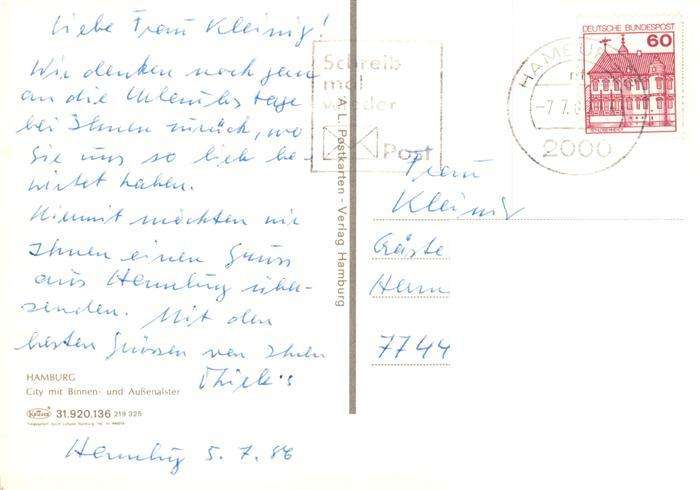 Liebe Frau Kleinig!
Wir denken noch gern
an die Urlaubstage
bei Ihnen zurück, wo
Sie uns so lieb be-
wirtet haben.
Hiermit möchten wir
Ihnen einen Gruss
aus Hamburg über-
senden. Mit den
besten Grüssen von Ihren
Thiele's
HAMBURG
City mit Binnen- und Außenalster
Krüger 31.920.136 219 325
Hamburg 5.7.86
A. L. Postkarten - Verlag Hamburg
Schreib
mal
wieder
Post
HAMBURG
-7.7.8
2000
DEUTSCHE BUNDESPOST
60
Frau
Kleinig
Gäste
7744